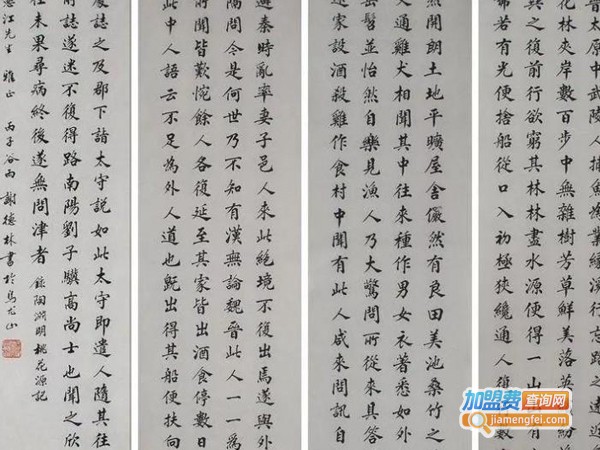 太原中武陵人捕魚為業緣溪行忘路之遠
花林夾岸數百步中無雜樹芳草鮮美落英
異之復前行欲窮其林林盡水源便得一山
彿若有光便捨船從口入初極狹纔通人復
然開朗土地平曠屋舍儼然有良田美池桑竹之
交通雞犬相聞其中往來種作男女衣著悉如外
髫並怡然自樂見漁人乃大驚問所從來具答
邀家設酒殺雞作食村中聞有此人咸來問訊自
避秦時亂率妻子邑人來此絕境不復出焉遂與外
隔問今是何世乃不知有漢無論魏晉此人一一為
所聞皆歎惋餘人各復延至其家皆出酒食停數日
此中人語云不足為外人道也既出得其船便扶向
處誌之及郡下詣太守説如此太守即遣人隨其往
前所誌遂迷不復得路南陽劉子驥高尚士也聞之欣
往未果尋病終後遂無問津者 錄陶淵明桃花源記
江先生雅正 丙子谷雨 謝德林書於烏尤山
加盟费查询网
jiamengfei.com